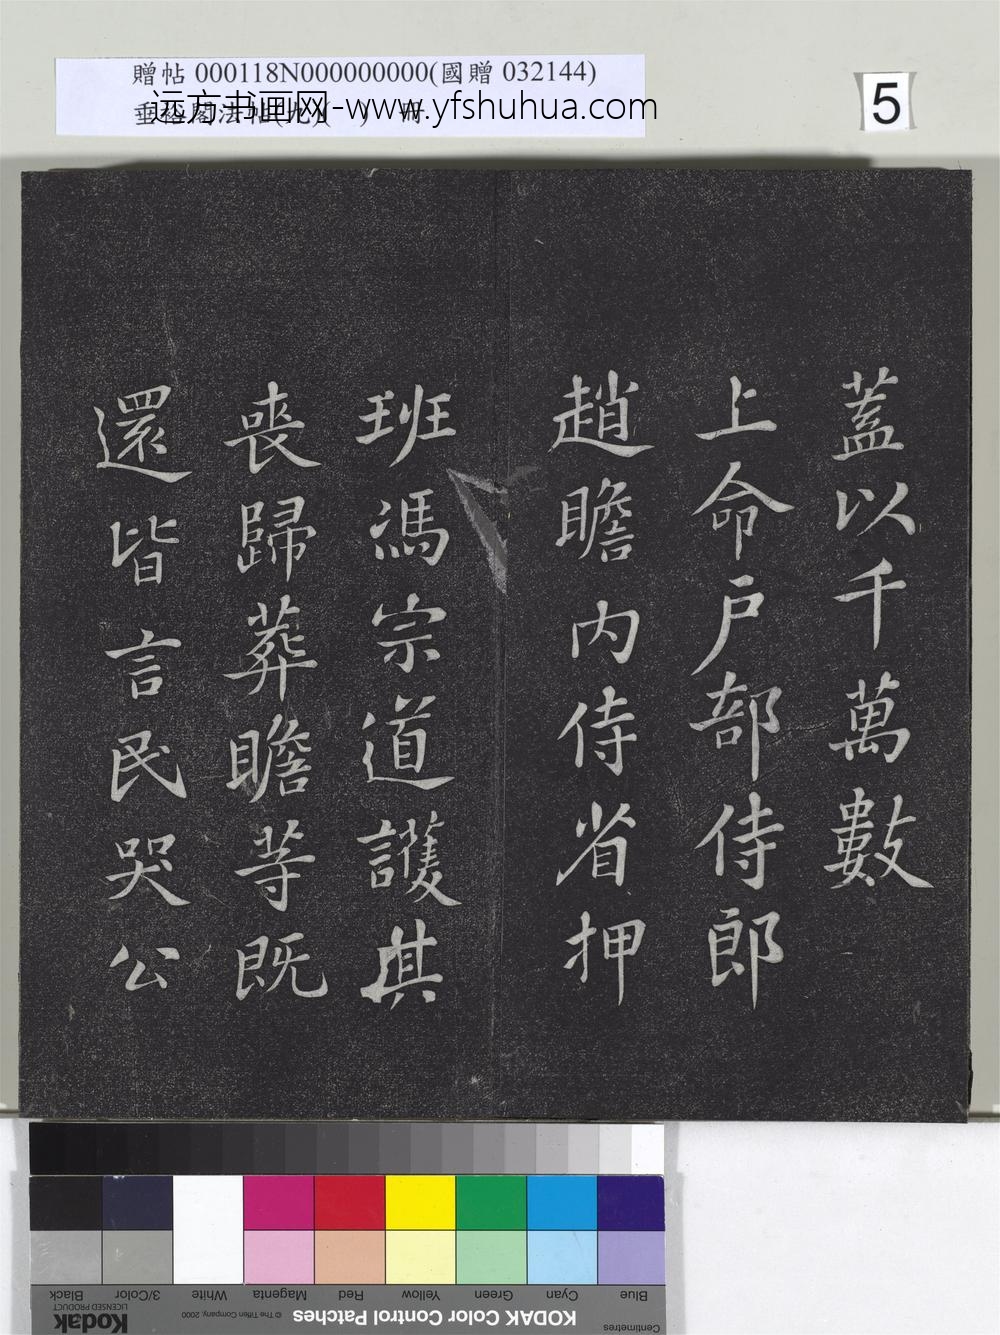 贈帖 000118N000000000(國贈 032144)
远方书画网-www.yfshuhua.com
5
蓋以千萬數
上命戶部侍郎
趙瞻內侍省押
班馮宗道護其
喪歸葬瞻等既
還皆言民哭公
Blue
Cyan
Green
Yellow
Red
Magenta
White
3/Color
Black
Centimetres
KODAK Color Control Patches
© The Tiffen Company, 2000
Kodak
LICENSED PRODUCT